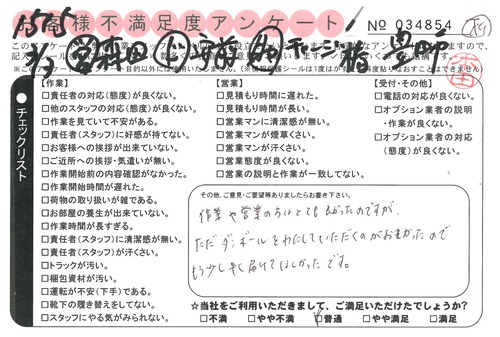 お客様不満足度アンケート
No 034854
チェックリスト
【作業】
□責任者の対応(態度)が良くない。
□他のスタッフの対応(態度)が良くない。
□作業を見ていて不安がある。
□責任者(スタッフ)に好感が持てない。
□お客様への挨拶が出来ていない。
□ご近所への挨拶・気遣いが無い。
□作業開始前の内容確認がなかった。
□作業開始時間が遅れた。
□荷物の取り扱いが雑である。
□お部屋の養生が出来ていない。
□作業時間が長すぎる。
□責任者(スタッフ)に清潔感が無い。
□責任者(スタッフ)が汗くさい。
□トラックが汚い。
□梱包資材が汚い。
□運転が不安(下手)である。
□靴下の履き替えをしてない。
□スタッフにやる気がみられない。
【営業】
□見積もり時間に遅れた。
□見積もり時間が長い。
□営業マンに清潔感が無い。
□営業マンが煙草くさい。
□営業マンが汗くさい。
□営業態度が良くない。
□営業の説明と作業が一致してない。
【受付・その他】
□電話の対応が良くない。
□オプション業者の説明
・作業が良くない。
□オプション業者の対応
(態度)が良くない。
その他、ご意見・ご要望等ありましたらお書き下さい。
作業や営業の方はとても良かったのですが、
ただダンボールをわたしていただくのがおそかったので
もう少し早く届けてほしかったです。
☆当社をご利用いただきまして、ご満足いただけたでしょうか?
□不満 □やや不満 □普通 □やや満足 □満足